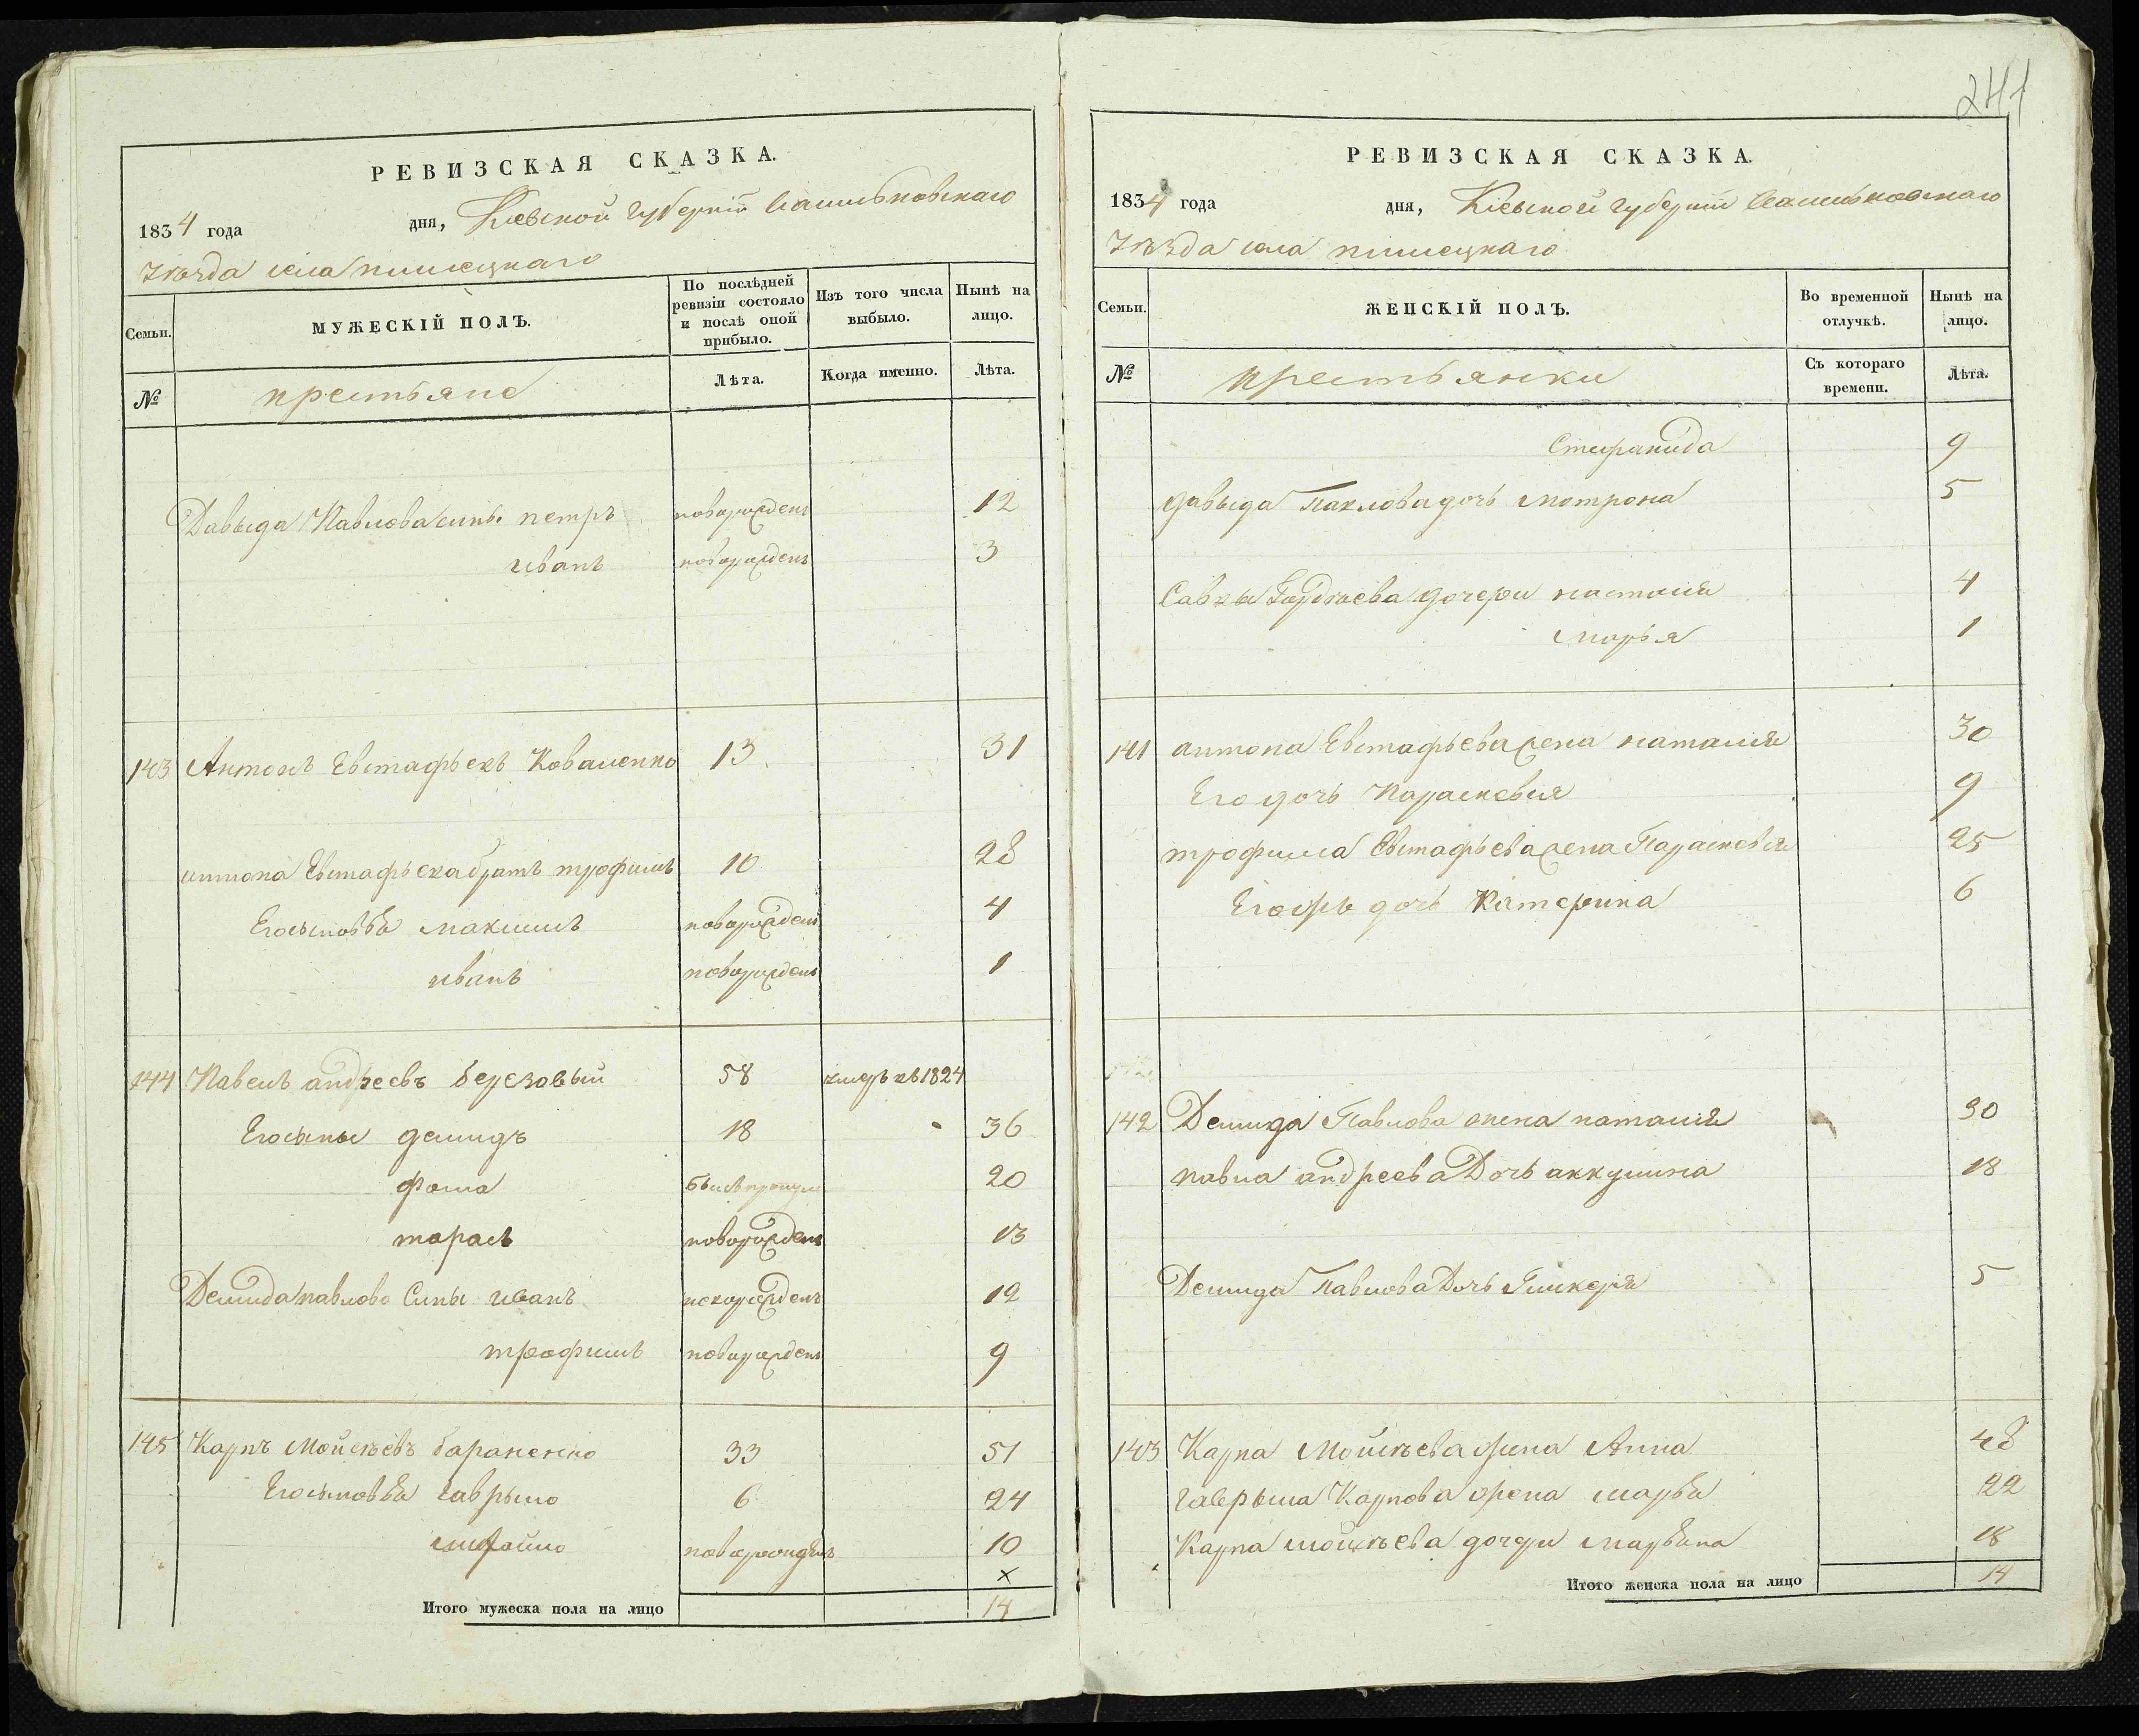 РЕВИЗСКАЯ СКАЗКА.
1834 года дня, Кіевской губерніи Васильковскаго
Уѣзда села
Семьи. МУЖЕСКІЙ ПОЛЪ. По послѣдней ревизіи состояло и послѣ оной прибыло. Изъ того числа выбыло. Нынѣ на лицо.
№ крестьяне Лѣта. Когда именно. Лѣта.
Давыда Павлова сины петръ новорожденъ 12
иванъ новорожденъ 3
143 Антонъ Евстафьевъ Коваленко 13 31
антона Евстафьева братъ трофимъ 10 28
Его сыновья максимъ новорожденъ 4
иванъ новорожденъ 1
144 Павелъ андреевъ березовый 58 умеръ въ 1824
Его сыны демидъ 18 36
фома 20
тарасъ новорожденъ 13
Демида павлова Сины иванъ новорожденъ 12
трофимъ новорожденъ 9
145 Карпъ Мойсѣевъ бараненко 33 51
Его сыновья гаврыло 6 24
михайло новорожденъ 10
×
Итого мужеска пола на лицо 14
241
РЕВИЗСКАЯ СКАЗКА.
1834 года дня, Кіевской губерніи Васильковскаго
Уѣзда села
Семьи. ЖЕНСКІЙ ПОЛЪ. Во временной отлучкѣ. Нынѣ на лицо.
№ крестьянки Съ котораго времени. Лѣта.
Стефанида 9
давыда Павлова дочь мотрона 5
Савы дочери настасія 4
марья 1
141 антона Евстафьева жена наталія 30
Его дочь Параскевія 9
трофима Евстафьева жена Параскевія 25
Его же дочь Катерина 6
142 Демида Павлова жена наталія 30
павла андреева Дочь аккулина 18
Демида Павлова Дочь Гликерія 5
143 Карпа Мойсѣева жена Анна 48
гаврыла Карпова жена марья 22
Карпа мойсѣева дочери марьяна 18
Итого женска пола на лицо 14